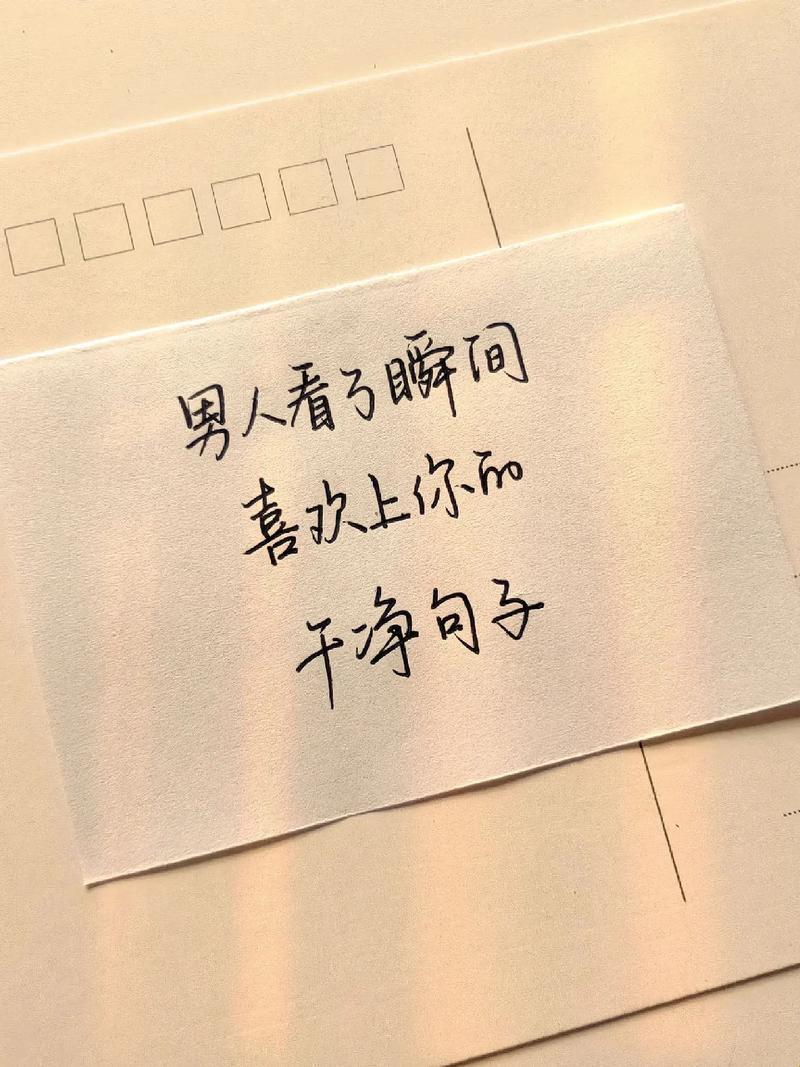 男人看了瞬间
喜欢上你的
干净句子